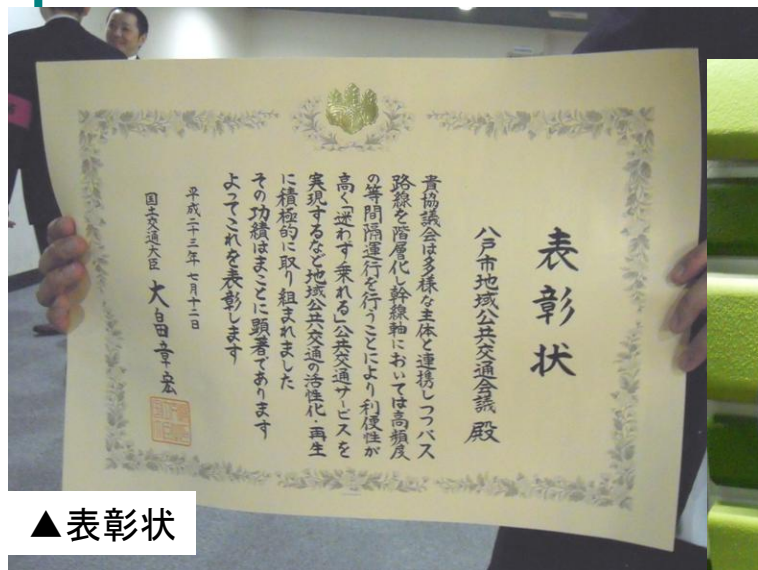 表彰状
八戸市地域公共交通会議 殿
貴協議会は多様な主体と連携しつつバス
路線を階層化し幹線軸においては高頻度
の等間隔運行を行うことにより利便性が
高く「迷わず乗れる」公共交通サービスを
実現するなど地域公共交通の活性化・再生
に積極的に取り組まれました
その功績はまことに顕著であります
よってこれを表彰します
平成二十三年七月十二日
国土交通大臣 大畠章宏
▲表彰状